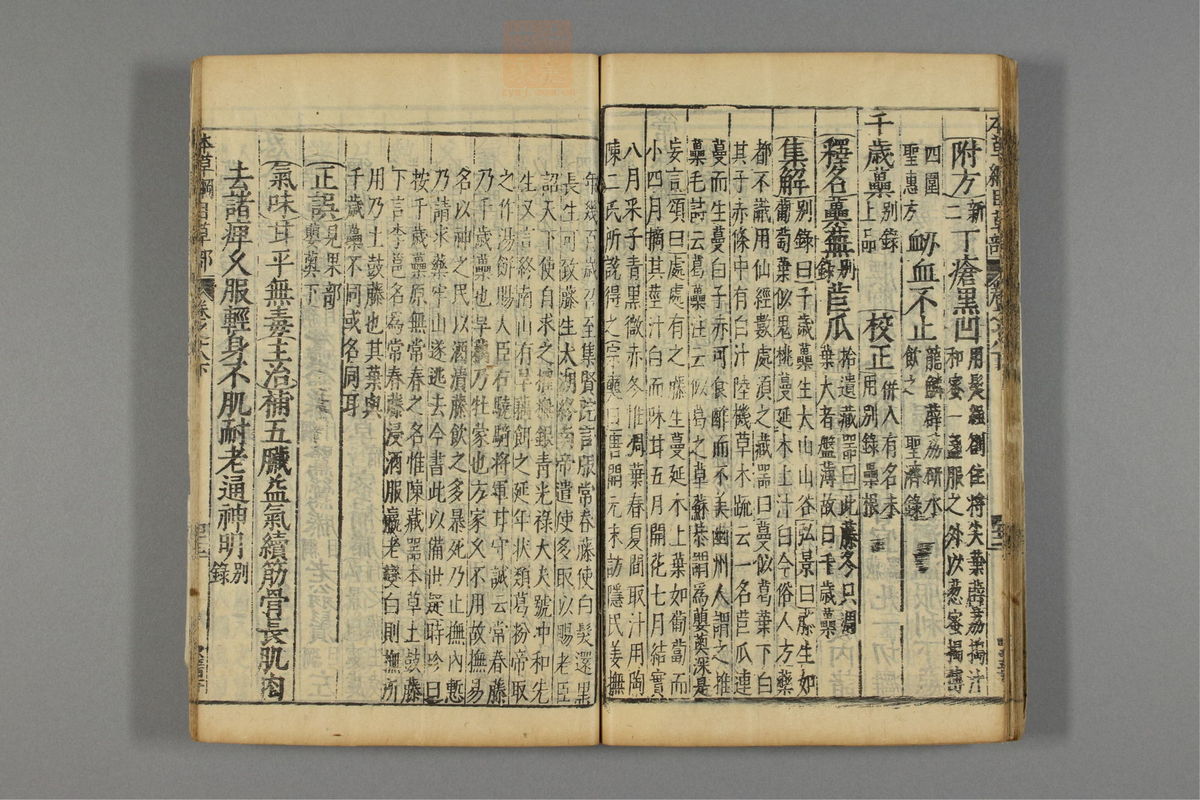 本草綱目草部 卷之十八下
附方新二丁瘡黑凹用髮繩劄住將尖葉薜荔擣汁
和蜜一盞服之外以葱蜜擣傅
四圍
聖惠方衂血不止龍鱗薜荔研水
飲之 聖濟錄
千歲蘽別錄
上品校正併入有名未
用別錄蘽根
釋名蘽蕪別錄苣瓜拾遺藏器曰此藤冬只凋
葉大者盤薄故曰千歲蘽
集解別錄曰千歲蘽生太山山谷弘景曰藤生如
葡萄葉似鬼桃蔓延木上汁白今俗人方藥
都不識用仙經數處須之藏器曰蔓似葛葉下白
其子赤條中有白汁陸機草木疏云一名苣瓜連
蔓而生蔓白子赤可食酢而不美幽州人謂之推
蘽毛詩云葛蘽注云似葛之草蘇恭謂爲蘡薁深是
妄言頌曰處處有之藤生蔓延木上葉如葡萄而
小四月摘其莖汁白而味甘五月開花七月結實
八月采子青黑微赤冬惟凋葉春夏間取汁用陶
陳二氏所說得之宗奭曰唐開元末訪隱民姜撫
年幾百歲召至集賢院言服常春藤使白髮還黑
長生可致藤生太湖終南帝遣使多取以賜老臣
詔天下使自求之擢撫銀青光祿大夫號冲和先
生又言終南山有旱藕餌之延年狀類葛粉帝取
之作湯餅賜人臣右驍騎將軍甘守誠云常春藤
乃千歲蘽也旱藕乃牡蒙也方家久不用故撫易
名以神之民以酒漬藤飲之多暴死乃止撫內慙
乃請求藥牢山遂逃去今書此以備世疑時珍曰
按千歲蘽原無常春之名惟陳藏器本草土鼓藤
下言李邕名爲常春藤浸酒服羸老變白則撫所
用乃土鼓藤也其葉與
千歲蘽不同或名同耳
正誤見果部
蘡薁下
氣味甘平無毒主治補五臟益氣續筋骨長肌肉
去諸痺久服輕身不肌耐老通神明別
錄
本草綱目草部 卷之十八下